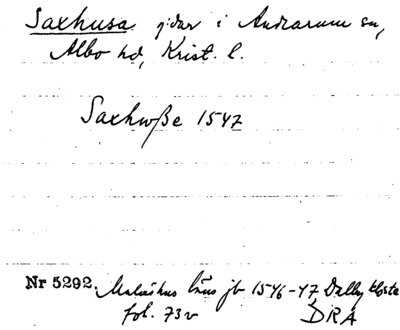 Saxhusa gdar i Andrarum sn,
Albo hd, Krist. l.
Saxhuße 1547
Nr 5292. Malmöhus läns jb 1546-47, Dalby kloster
fol. 73v DRA